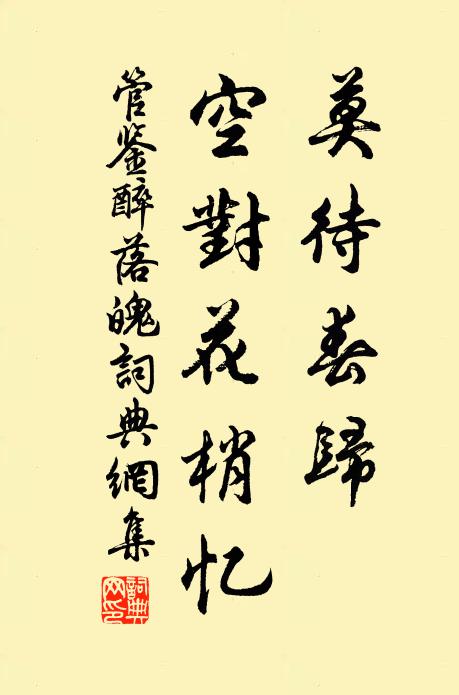 莫待春歸
空對花梢忆
管鉴醉落魄詞典網集
詞典網印